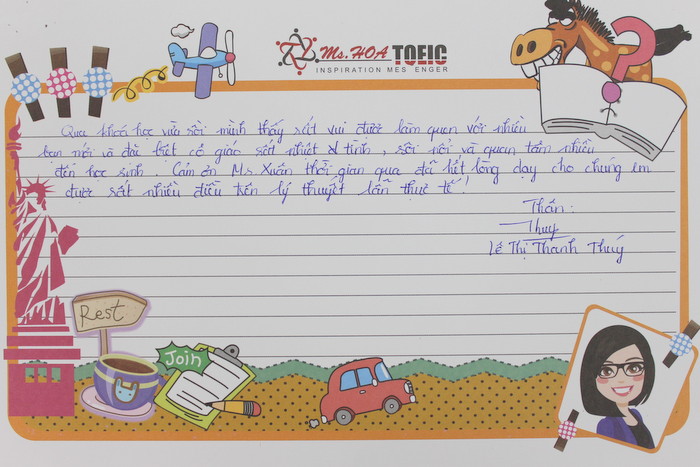 Ms. HOA TOEIC
INSPIRATION MES ENGER
?
Qua khoá học vừa rồi mình thấy rất vui được làm quen với nhiều
bạn mới và đặc biệt cô giáo rất nhiệt tình, sôi nổi và quan tâm nhiều
đến học sinh. Cảm ơn Ms Xuân thời gian qua đã hết lòng dạy cho chúng em
được rất nhiều điều trên lý thuyết lẫn thực tế!
Thân:
Thuý
Lê Thị Thanh Thuý
Rest
Join